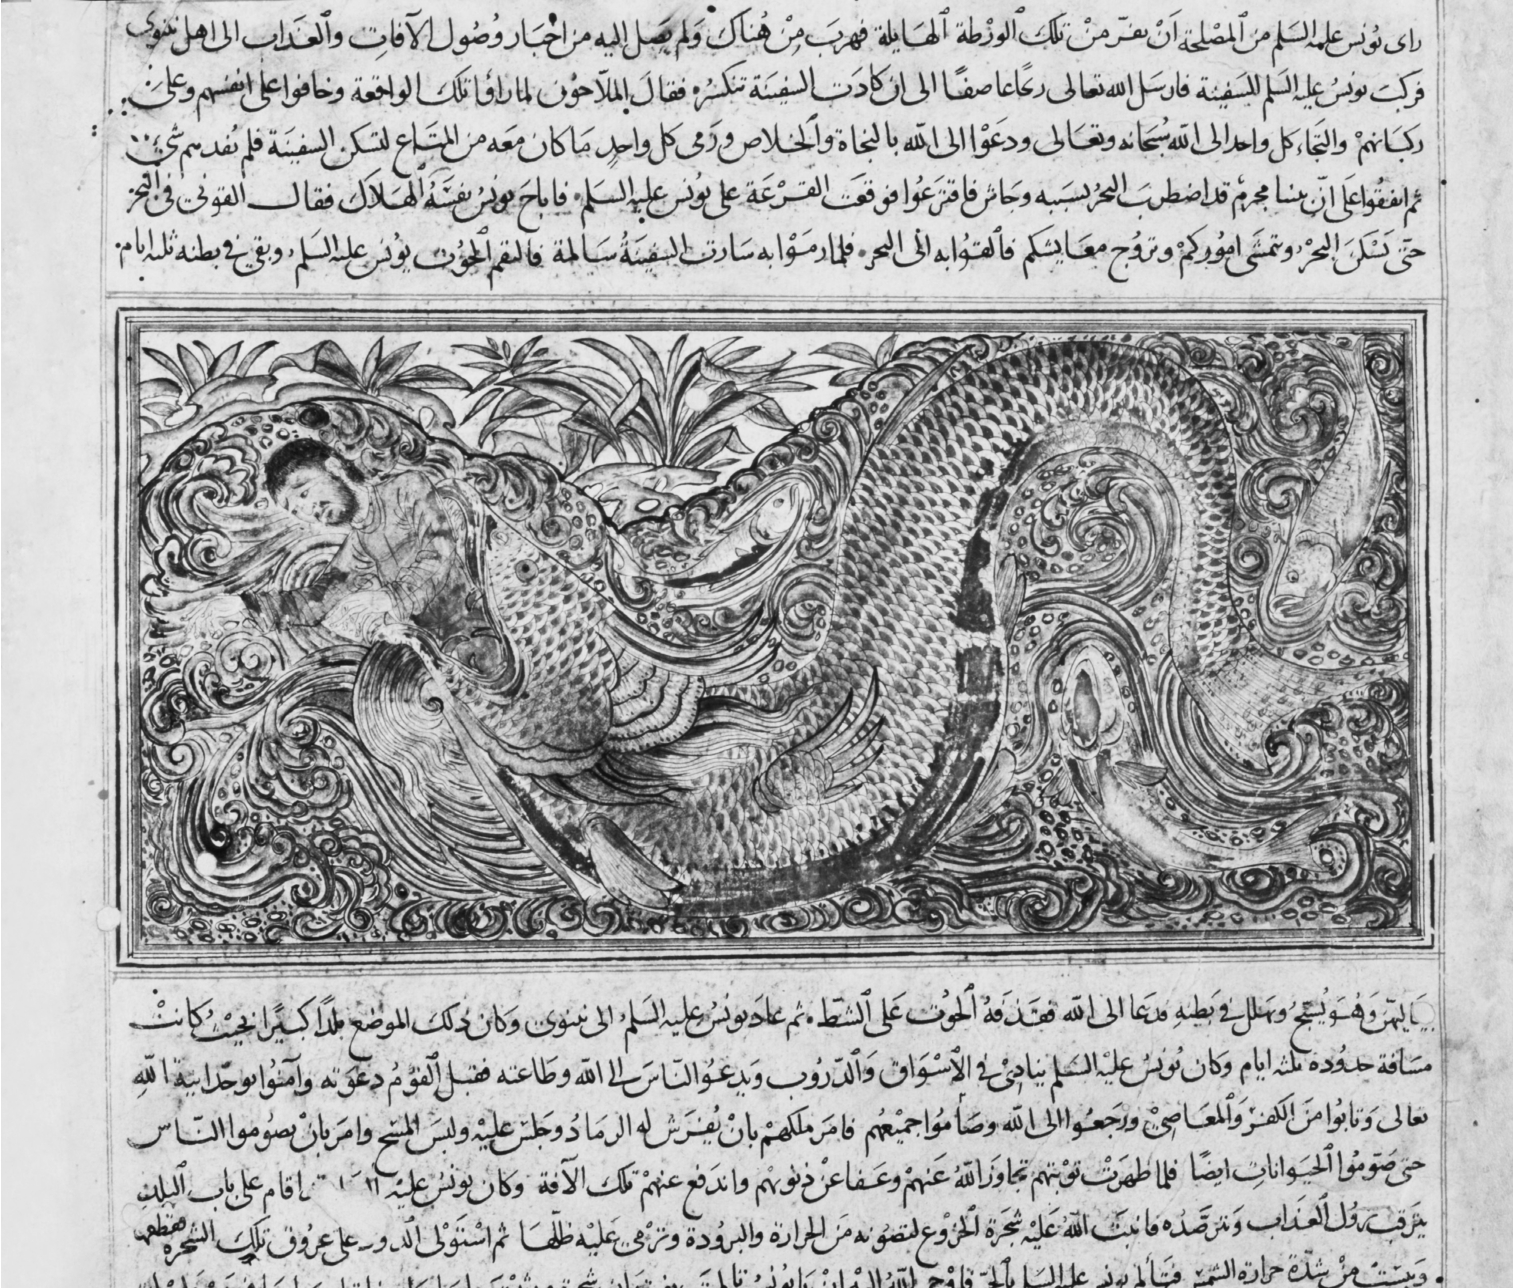 رای یونس علیه السلم من المصلحة ان یفرّ من تلك الورطة الهایلة فهرب من هناك ولم یصل الیه من اخبار وصول الآفات والعذاب الی اهل نینوی
فركب یونس علیه السلم السفینة فارسل الله تعالی ریحا عاصفا الی ان كادت السفینة تنكسر فقال الملاحون لما رأوا تلك الواقعة وخافوا علی انفسهم وعلی
ركبانهم والتجاء كل واحد الی الله سبحانه وتعالی ودعوا الی الله بالنجاة والخلاص ورمی كل واحد ما كان معه من المتاع لتسكن السفینة فلم یفدهم شیء
ثم اتفقوا علی انّ بینا مجرم قد اضطرب البحر بسببه وجاش فاقترعوا فوقعت القرعة علی یونس علیه السلم فاباح یونس نفسه الهلاك فقال القونی فی البحر
حتّی یسكن البحر وتتمشی اموركم وتروج معایشكم فالقوا به الی البحر فلما رموا به سارت السفینة سالمة فالتقم الحوت یونس علیه السلم وبقی فی بطنه ثلثه ایام
بلیالیهن وهو یسبح ویهلل فی بطنه فدعا الی الله فقذفه الحوت علی الشطّ ثم عاد یونس علیه السلم الی نینوی وكان ذلك الموضع بلدا كبیرا بحیث كانت
مسافة حدوده ثلثه ایام وكان یونس علیه السلم ینادی فی الاسواق والدروب ویدعو الناس الی الله وطاعته فقبل القوم دعوته وآمنوا بوحدانیة الله
تعالی وتابوا من الكفر والمعاصی ورجعوا الی الله وصاموا جمیعهم فامر ملكهم بان یفرش له الرماد وجلس علیه ولبس المسح وامر بان یصوموا الناس
حتی صوموا الحیوانات ایضا فلما ظهرت توبتهم تجاوز الله عنهم وعفا عن ذنوبهم واندفع عنهم تلك الآفة وكان یونس علیه اقام علی باب البلد
یترقب نزول العذاب ویترصده فانبت الله علیه شجرة الخروع لتصونه من الحرارة والبرودة وترمی علیه ظلها ثم استولی الدود علی عروق تلك الشجره فقطعها
ویبست من شدّة حرارة الشمس فتألم یونس علیه السلم بالحر فاوحی الله الیه ان یا یونس